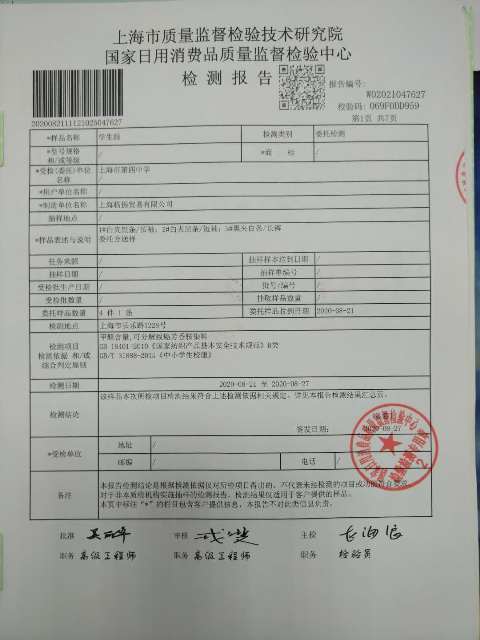 上海市质量监督检验技术研究院
国家日用消费品质量监督检验中心
检测报告
报告编号:
W02021047627
校验码: 069F0DD959
第1页 共7页
*样品名称 学生服 检测类别 委托检测
*型号规格 和/或等级 / *商标 /
*受检(委托)单位名称 上海市第四中学
*用户单位名称 /
*制造单位名称 有限公司
抽样地点 /
*样品表述与说明 1#白夹黑条/长袖; 2#白夹黑条/短袖; 3#黑夹白条/长裤
委托方送样
任务来源 / 抽样样本送到日期 /
抽样日期 / 抽样单编号 /
受检批生产日期 / 批号/编号 /
受检批数量 / 抽取样品数量 /
委托样品数量 4 件 1 条 委托样品收到日期 2020-08-21
检测地点 上海市长乐路1228号
检测项目
检测依据 和/或
综合判定原则
甲醛含量,可分解致癌芳香胺染料
GB 18401-2010《国家纺织产品基本安全技术规范》B类
GB/T 31888-2015《中小学生校服》
检测日期 2020-08-21 至 2020-08-27
检测结论 该样品本次所检项目检测结果符合上述检测依据相关规定。详见本报告检测结果汇总页。
签发日期: 2020-08-27
*受检单位 地址 /
邮编 / 电话 /
备注 本报告检测结论是根据检测依据仅对所检项目得出的,不代表未检项目的
对于非本质检机构实施抽样的检测报告,检测结果仅适用于客户提供的样品。
本页中标注"*"的栏目包含客户提供信息,本报告不对此类信息负责。
批准 审核 主检
职务 高级工程师 职务 高级工程师 职务 检验员